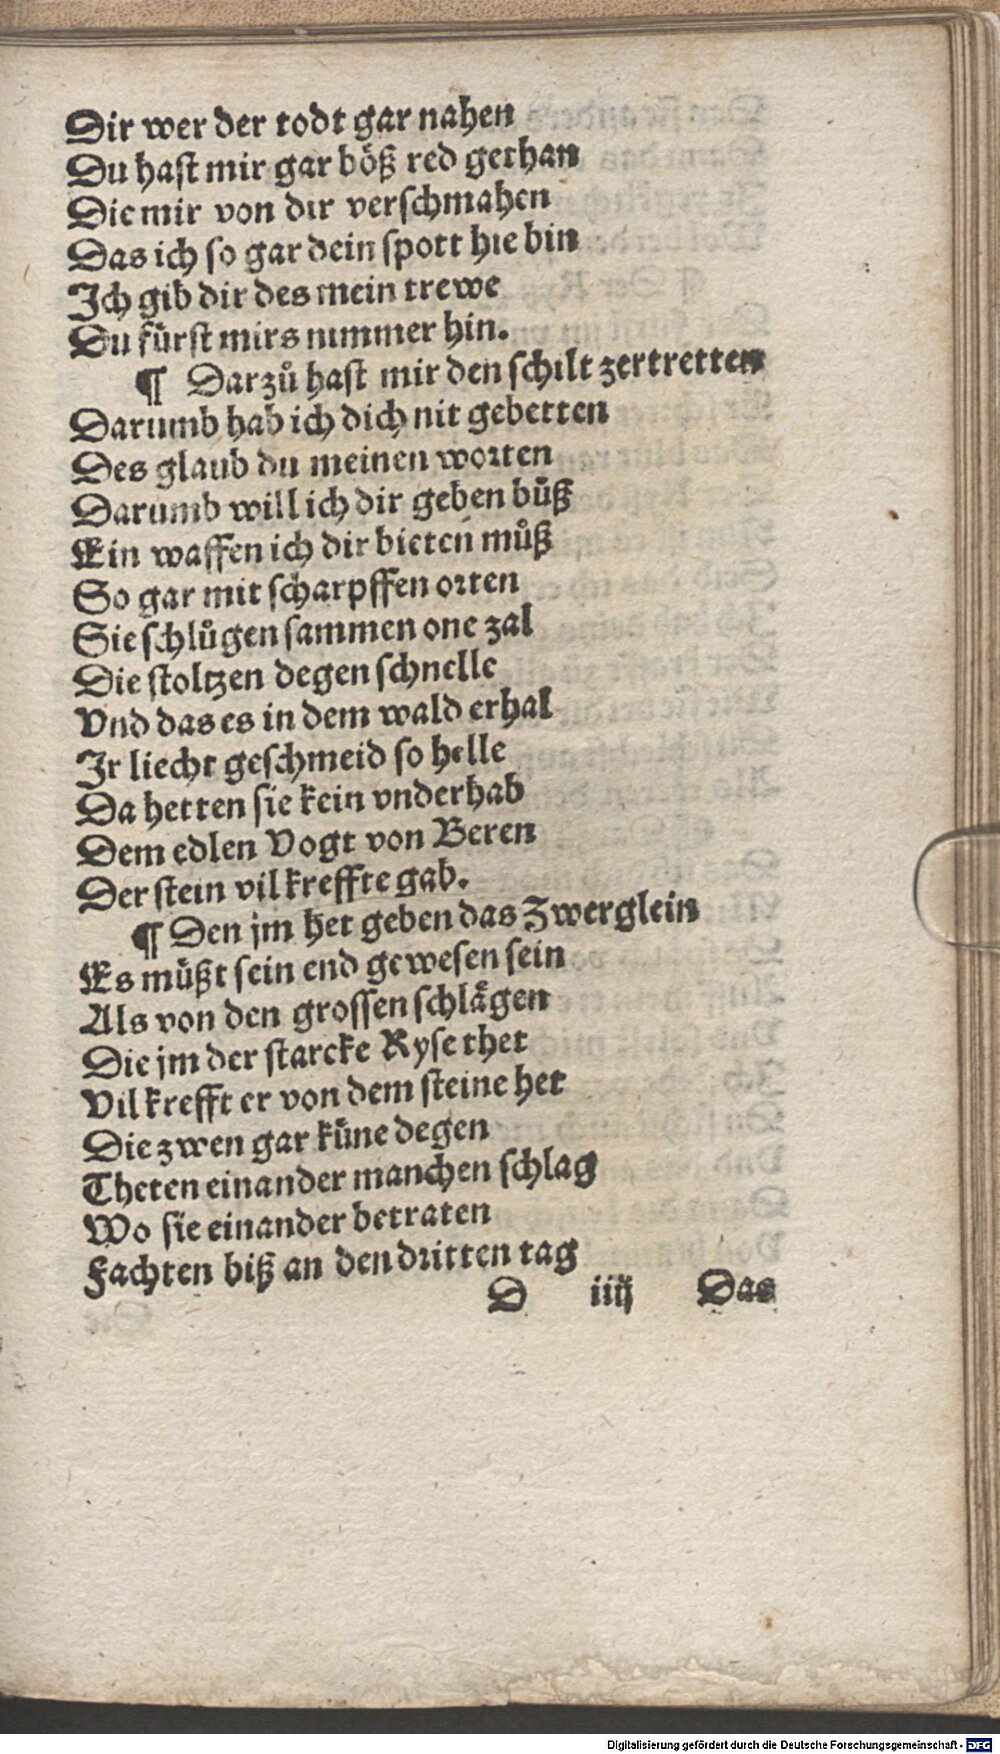 Dir wer der todt gar nahen
Du haſt mir gar böß red gethan
Die mir von dir verſchmahen
Das ich ſo gar dein ſpott hie bin
Ich gib dir des mein trewe
Du fürſt mirs nimmer hin.
¶ Darzů haſt mir den ſchilt zertretten
Darumb hab ich dich nit gebetten
Des glaub du meinen worten
Darumb will ich dir geben büß
Ein waffen ich dir bieten můß
So gar mit ſcharpffen orten
Sie ſchlůgen ſammen one zal
Die ſtoltzen degen ſchnelle
Vnd das es in dem wald erhal
Ir liecht geſchmeid ſo helle
Da hetten ſie kein vnderhab
Dem edlen Vogt von Beren
Der ſtein vil kreffte gab.
¶ Den jm het geben das Zwerglein
Es müßt ſein end geweſen ſein
Als von den groſſen ſchlägen
Die jm der ſtarcke Ryſe thet
Vil krefft er von dem ſteine het
Die zwen gar küne degen
Theten einander manchen ſchlag
Wo ſie einander betraten
Fachten biß an den dritten tag
D iiij Das
Digitalisierung gefördert durch die Deutsche Forschungsgemeinschaft - DFG